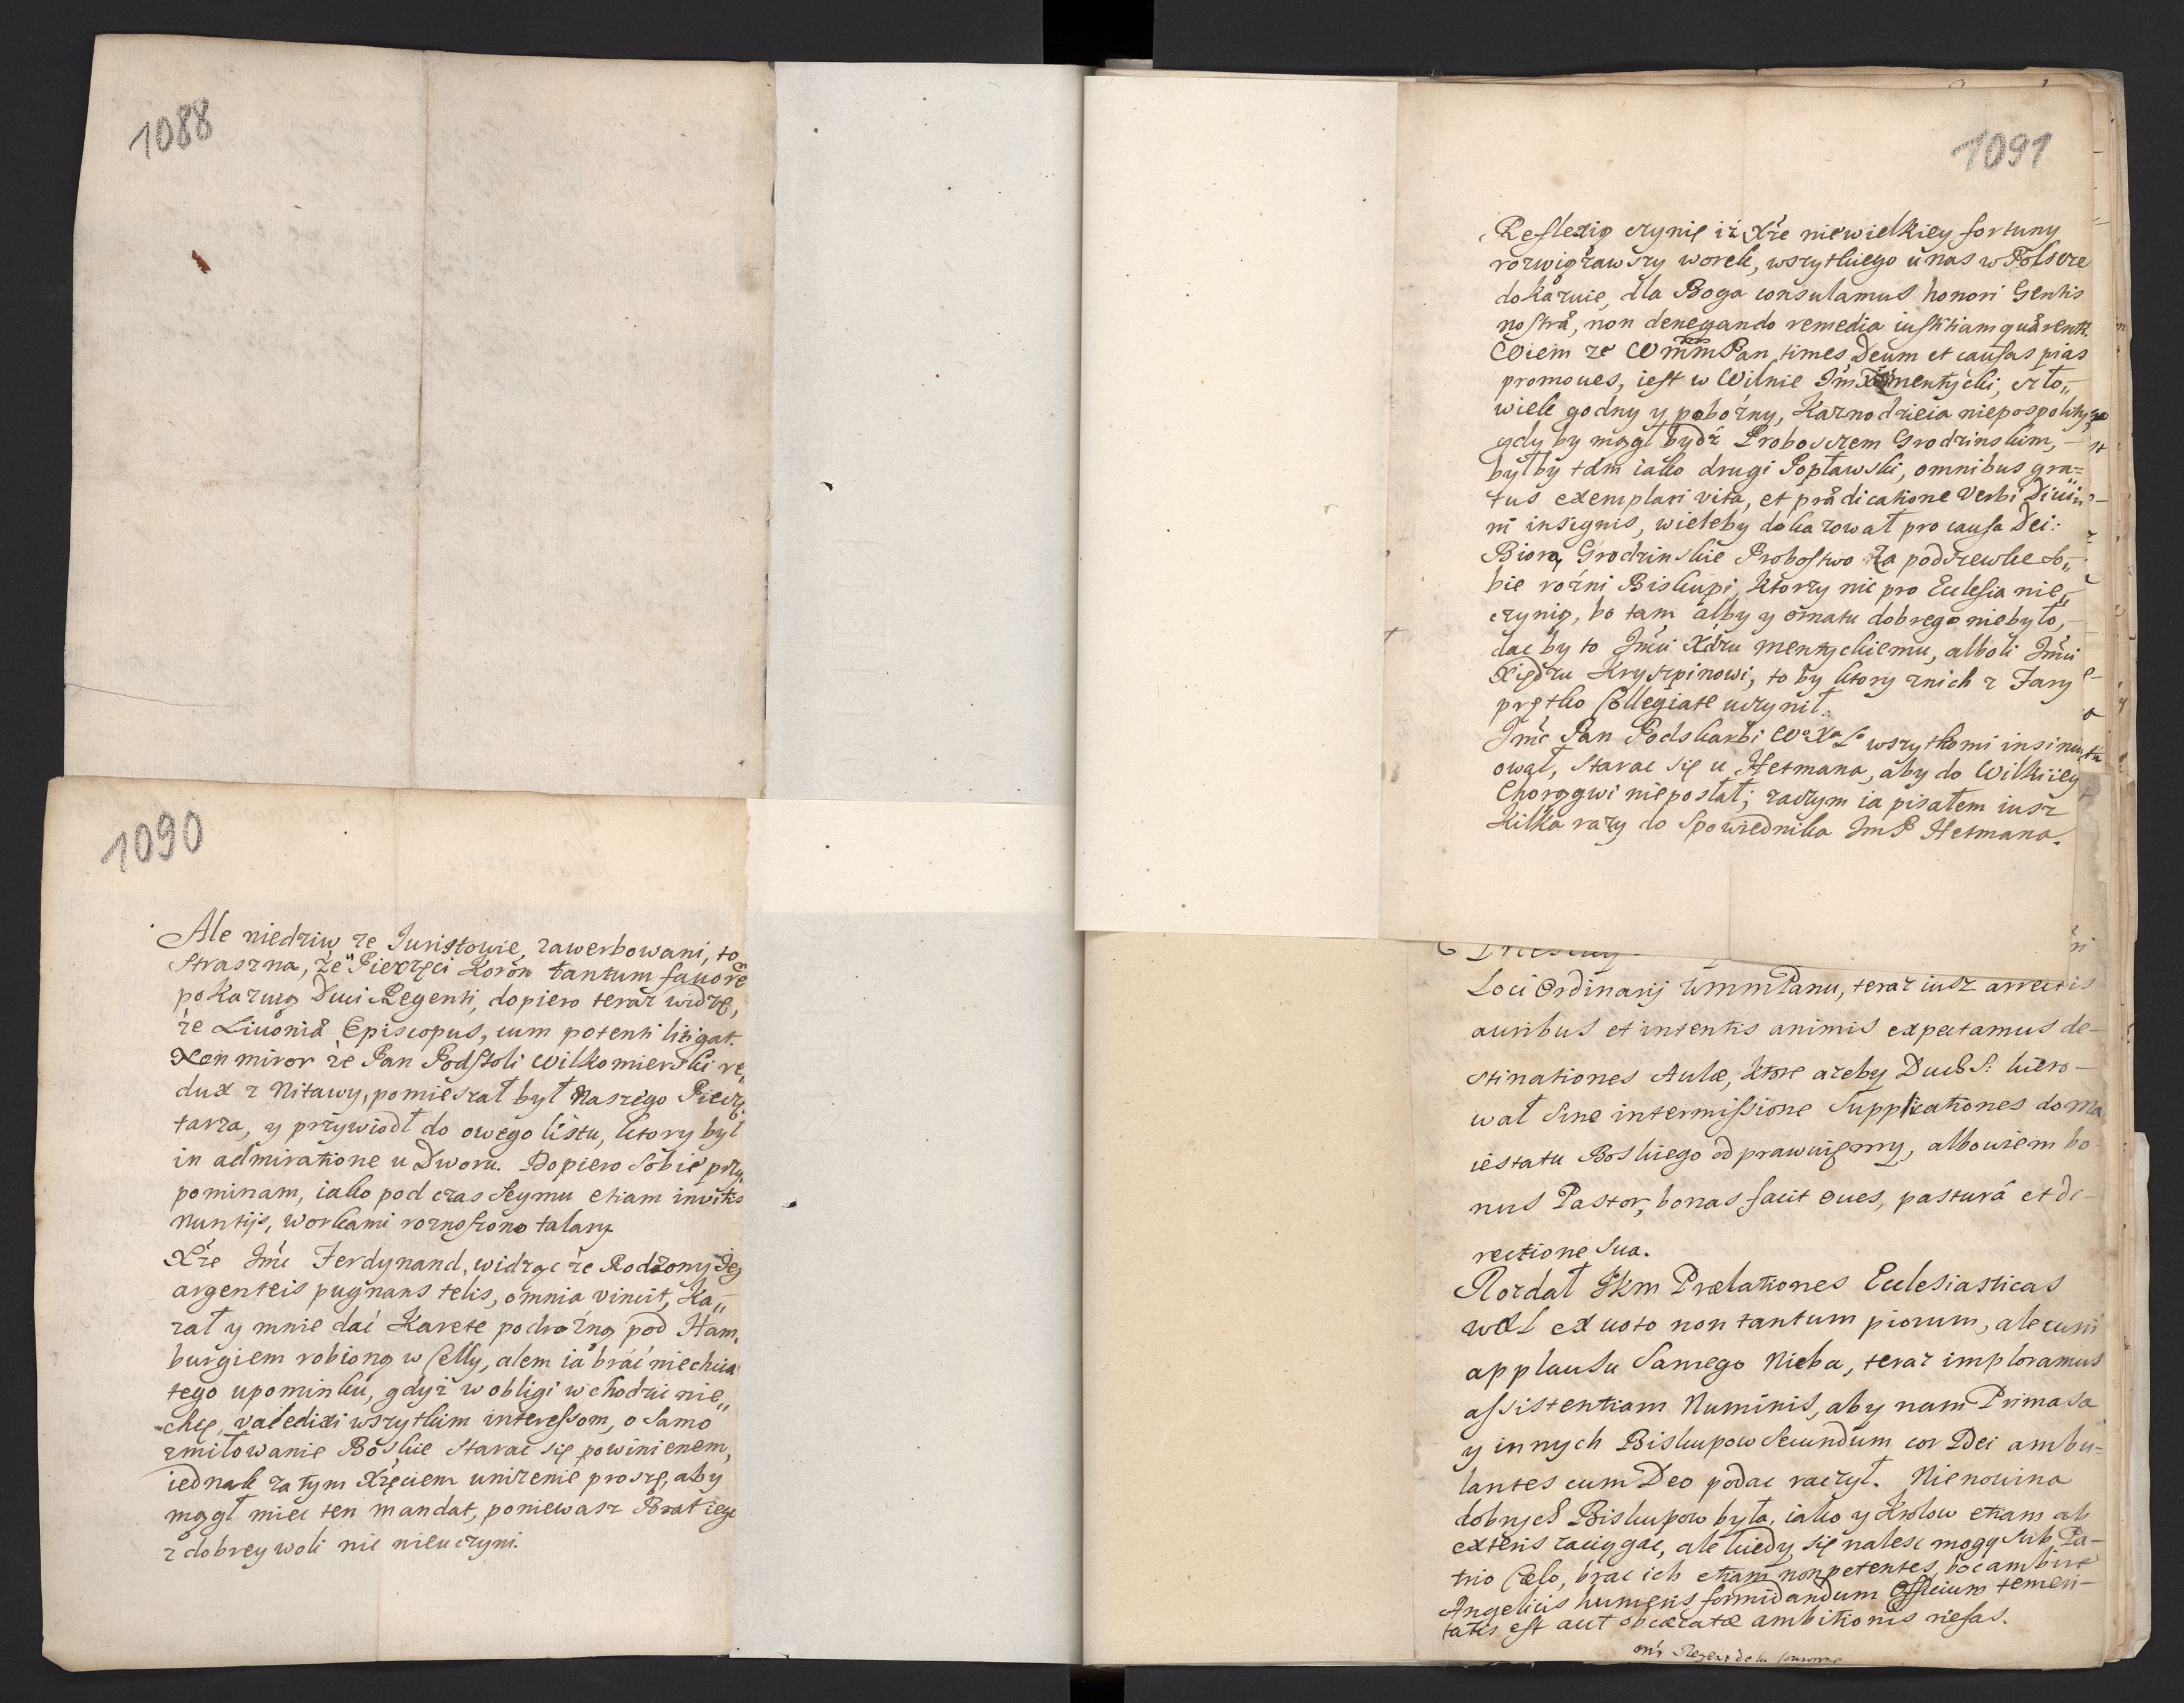 1088
1090
Ale niedziw ze Juristowie, zawerbowani, to
straszna, że Pieczęci Koron tantum fauorẽ
pokazuią Duci Regenti, dopiero teraz widzę,
że Liuoniæ Episcopus, cum potenti litigat.
Non miror że Pan Podstoli Wilkomierski re„
dux z Mitawy, pomieszał był Naszego Piecz„
tarza, y przywiodł do owego listu, ktory był
in admiratione u Dworu. Dopiero sobie przy„
pominam, iako pod czas Seymu etiam invitis
Nuntijs, workami roznoszono talary.
Xże Jmć Ferdynand, widząc że Rodzony Jeg
argenteis pugnans telis, omnia vincit, Ka„
zał y mnie dać Karete podrożną pod Ham„
burgiem robioną w Celly, alem ia brać niechcia
tego upominku, gdyż w obligi wchodzić nie„
chcę, valedixi wszytkim interessom, o samo
zmiłowanie Boskie starac się powinienem,
iednak za tym Xzęciem unizenie proszę, aby
mogł miec ten mandat, poniewasz Brat iego
z dobrey woli nic nieuczyni.
1091
Reflexią czynię iż Xże niewielkiey fortuny
rozwiązawszy worek, wszytkiego u nas w Polszcze
dokazuie, dla Boga consulamus honori Gentis
nostræ, non denegando remedia iustitiam quærenti.
Wiem ze WmmPan, times Deum et causas pias
promoues, iest w Wilnie Jm X mentycki, czło„
wiek godny y pobożny, Kaznodzieia niepospolity,
gdyby mogł bydź Proboszczem Grodzinskim,
byłby tam iako drugi Popławski, omnibus gra=
tus exemplari vita, et prædicatione Verbi Diuin
ni insignis, wieleby dokazował pro causa Dei:
Biorą Grodzinskie Probostwo za podszewke so„
bie rożni Biskupi, Ktorzy nic pro Eclesia nie„
czynią, bo tam alby y ornatu dobrego niebyło,
dac by to Jmći Xdzu mentyckiemu, alboli Jmći
Xiędzu Kryszpinowi, to by ktory znich z Fary
prętko Collegiate uczynił.
Jmć Pan Podskarbi W° X° L° wszytkomi insinu
ował, starac się u Hetmana, aby do Wilkiiey
Chorągwi nieposłał; zaczym ia pisałem iusz
Kilka razy do Spowiednika JmP Hetmana.
Loci Ordinarij WmmPanu, teraz iusz arrectis
auribus et intentis animis expectamus de-
stinationes Aulæ, ktore azeby Du S: kiero-
wał sine intermissione Supplicationes do Ma
iestatu Boskiego odprawuięmy, albowiem bo-
nus Pastor, bonas facit oues, pasturâ et di-
rectione sua.
Rozdał Jkm Prælationes Ecclesiasticas
WXL ex uoto non tantum piorum, ale cum
applausu samego Nieba, teraz imploramus
assistentiam Numinis, aby nam Primasa
y innych Biskupow secundum cor Dei ambu=
lantes cum Deo podac raczył. Nienowina
dobrych Biskupow była, iako y Krolow etiam ab
exteris zaciągac, ale kiedy się nalesc mogą sub Pa-
trio Cælo, brac ich etiam non petentes, boc ambire
Angelicis humeris formidandum Officium temeri-
tatis est aut obcæcatæ ambitionis nefas.